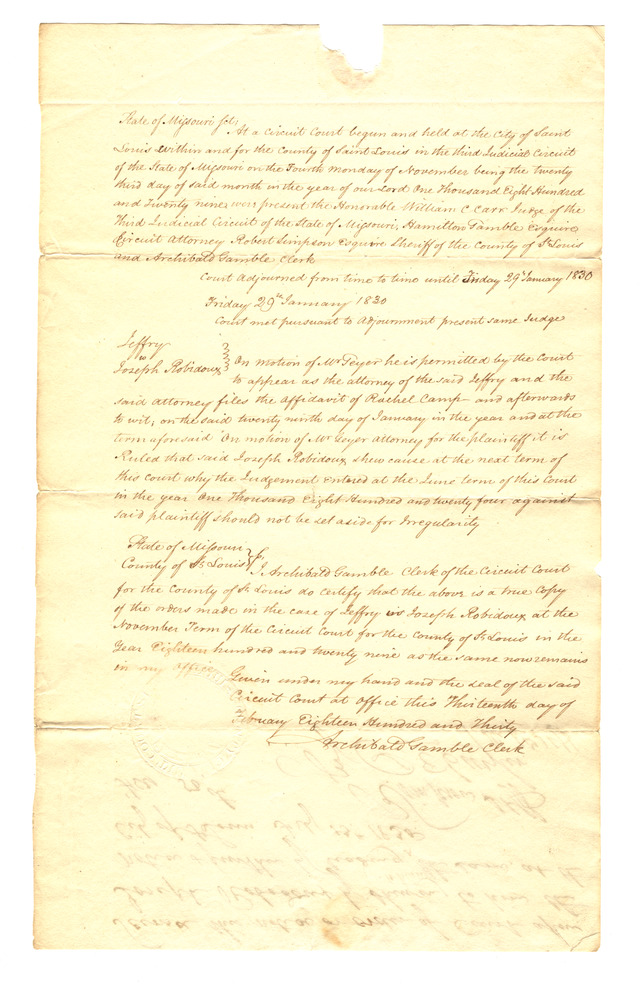 State of Missouri Sct.
At a Circuit Court begun and held at the City of Saint
Louis within and for the County of Saint Louis in the third Judicial Circuit
of the State of Missouri on the Fourth Monday of November being the twenty
third day of said month in the year of our Lord One Thousand Eight Hundred
and Twenty nine, were present the Honorable William C Carr Judge of the
Third Judicial Circuit of the State of Missouri, Hamilton Gamble Esquire
Circuit Attorney Robert Simpson Esquire Sheriff of the County of St Louis
and Archibald Gamble Clerk
Court Adjourned from time to time until Friday 29th January 1830
Friday 29th January 1830
Court met pursuant to Adjournment present same Judge
Jeffry
vs
Joseph Robidoux
On motion of Mr Geyer he is permitted by the Court
to appear as the attorney of the said Jeffry and the
said attorney files the affidavit of Rachel Camp – and afterwards
to wit, on the said twenty ninth day of January in the year and at the
term aforesaid On motion of Mr Geyer attorney for the plaintiff it is
Ruled that said Joseph Robidoux shew cause at the next term of
this court why the Judgement entered at the June term of this Court
in the year One Thousand Eight Hundred and twenty four against
said plaintiff should not be set aside for Irregularity
State of Missouri
County of St Louis
I Archibald Gamble Clerk of the Circuit Court
for the County of St Louis do certify that the above is a true Copy
of the orders made in the case of Jeffry vs Joseph Robidoux at the
November Term of the Circuit Court for the County of St Louis in the
Year Eighteen hundred and twenty nine as the same now remains
in my office
Given under my hand and the seal of the said
Circuit Court at office this Thirteenth day of
February Eighteen Hundred and Thirty
Archibald Gamble Clerk